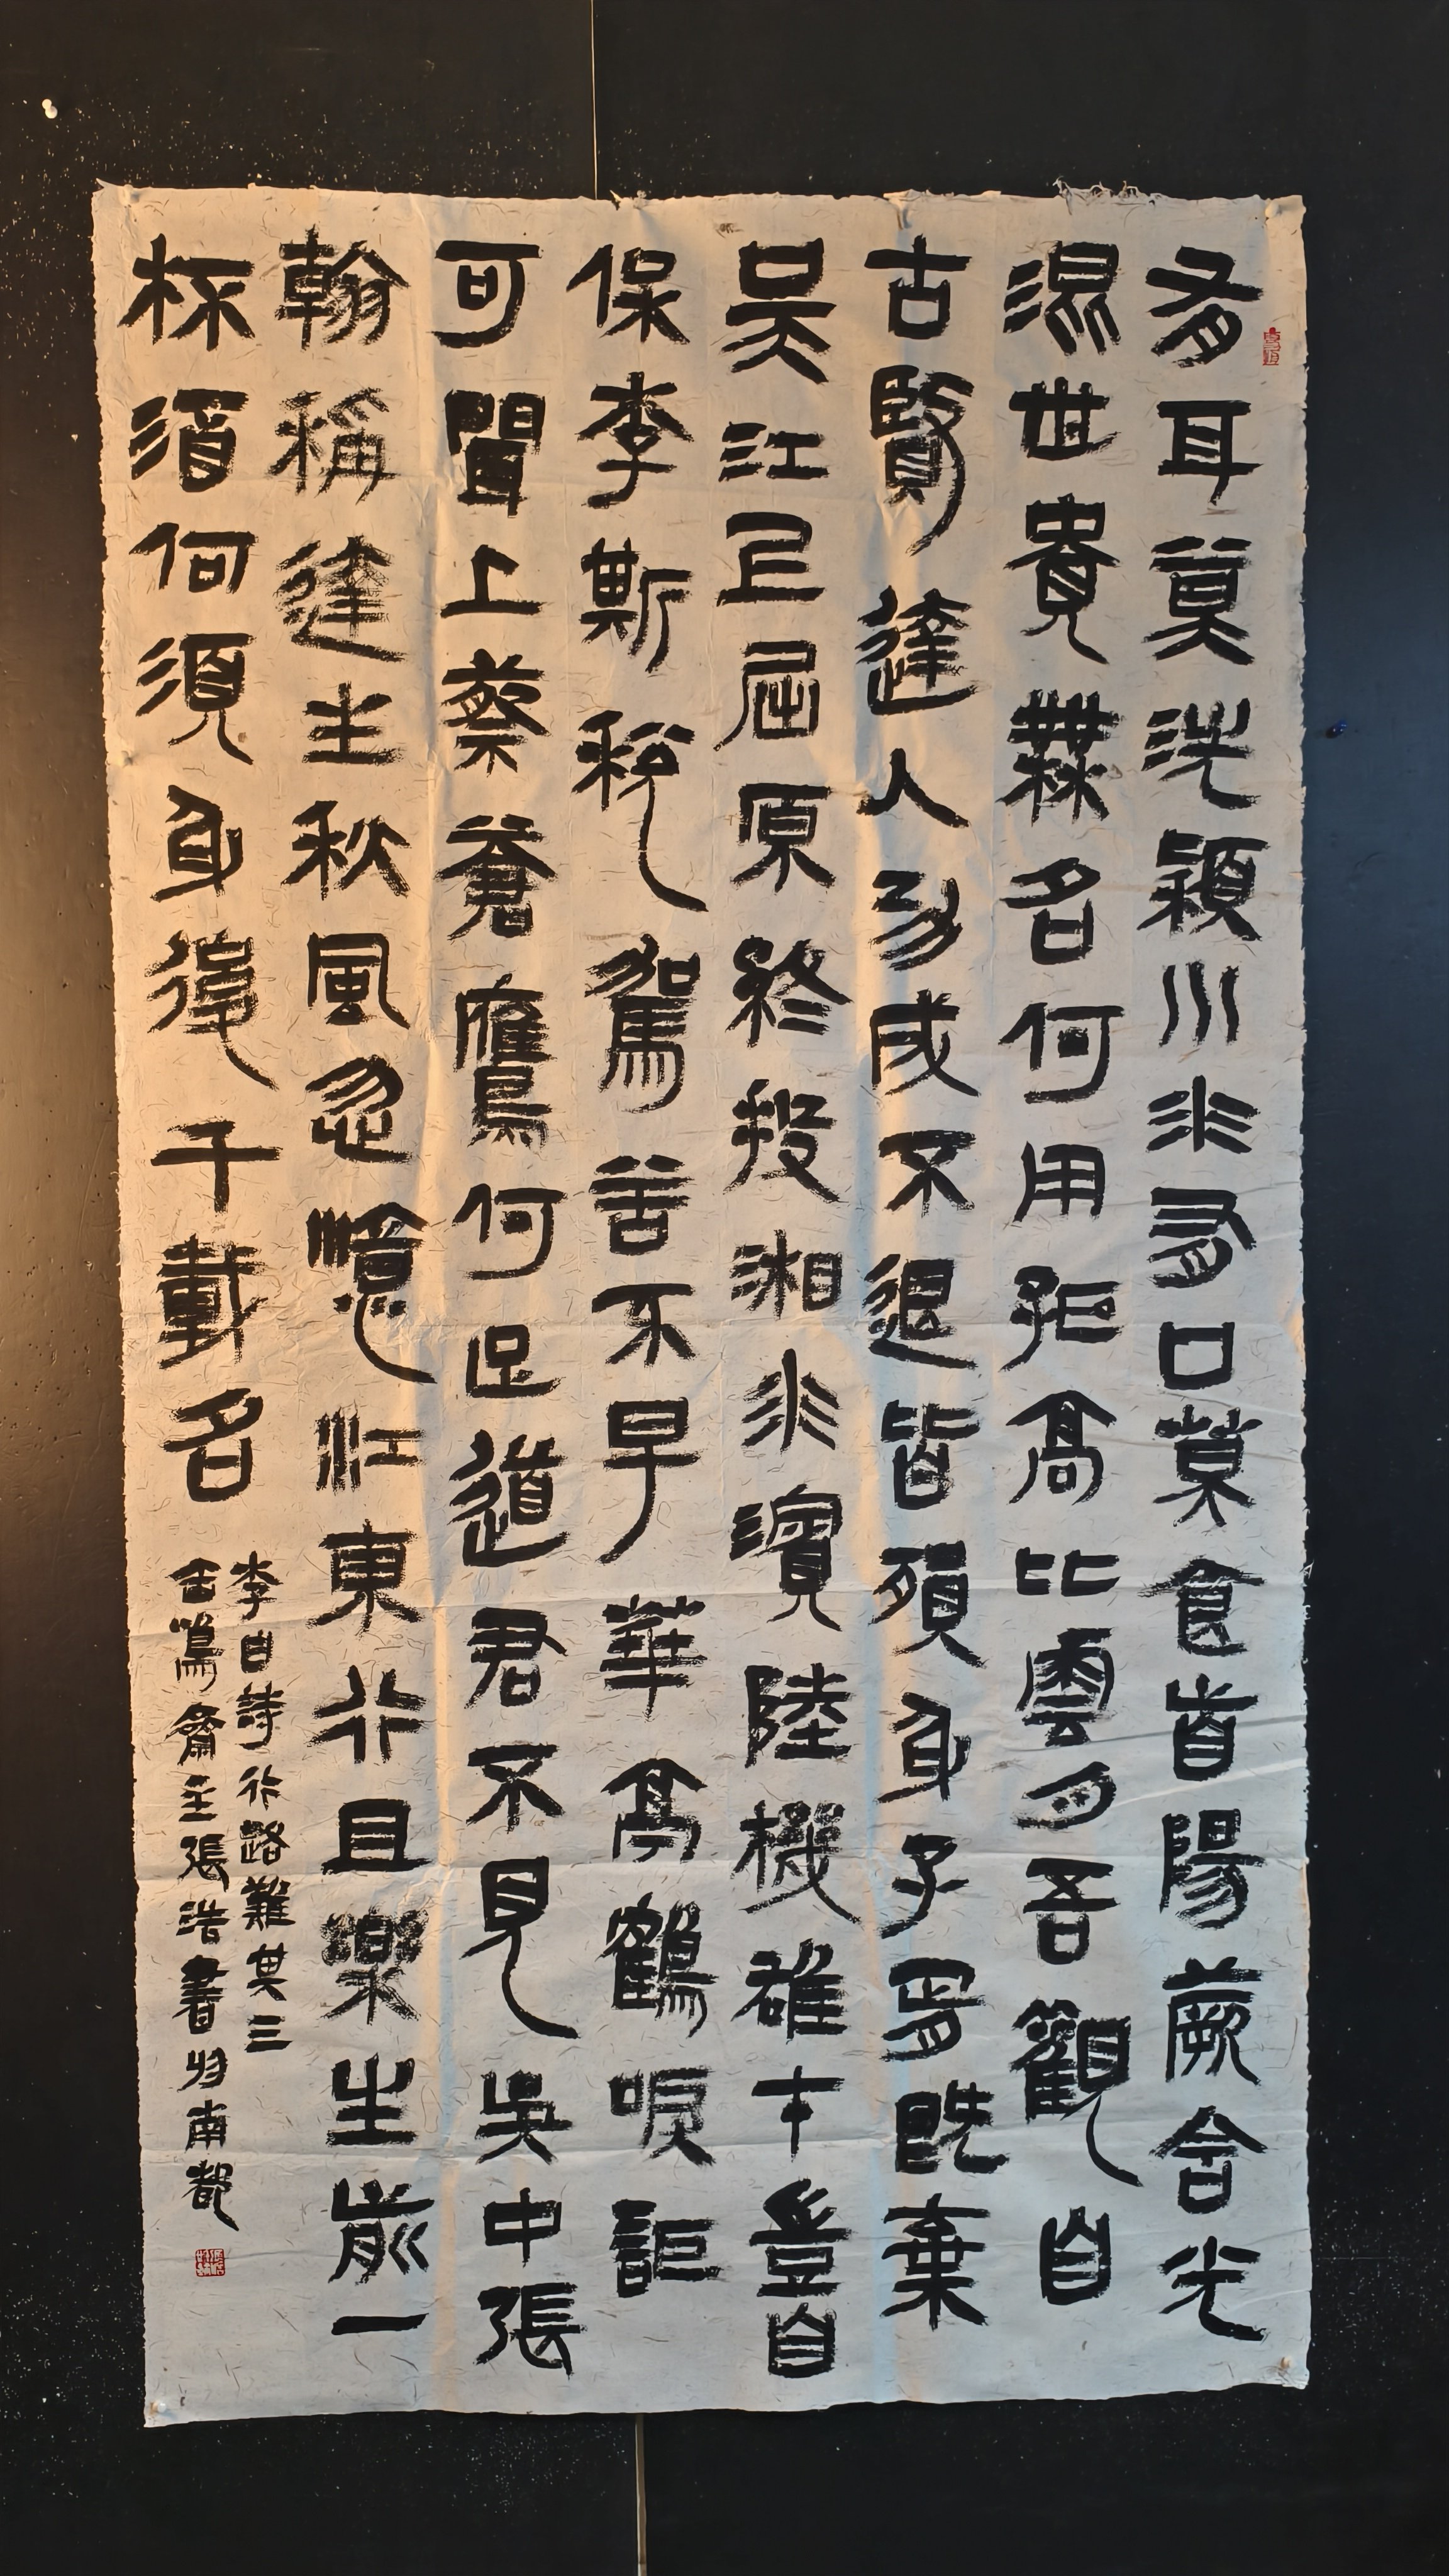 有耳莫洗潁川水有口莫食首陽蕨含光
混世貴無名何用孤高比雲月吾觀自
古賢達人功成不退皆殞身子胥既棄
吳江上屈原終投湘水濱陸機雄才豈自
保李斯稅駕苦不早華亭鶴唳詎
可聞上蔡蒼鷹何足道君不見吳中張
翰稱達生秋風忽憶江東行且樂生前一
杯酒何須身後千載名
李白詩行路難其三
齋主張浩書於南都